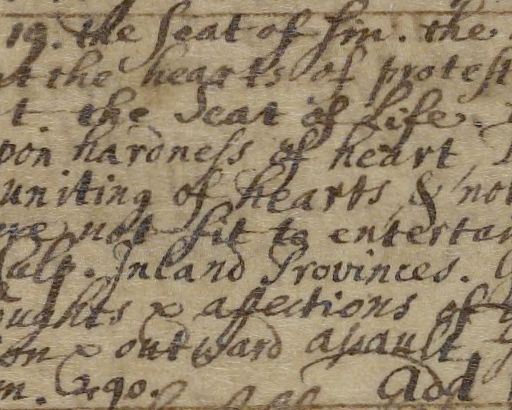 19. the seat of sin. the
at the hearts of protest
t the Seat of life.
pon hardness of heart
uniting of hearts & not
are not fit to entertai
Inland Provinces.
oughts & affections of
ion & outward
m. 290. Add